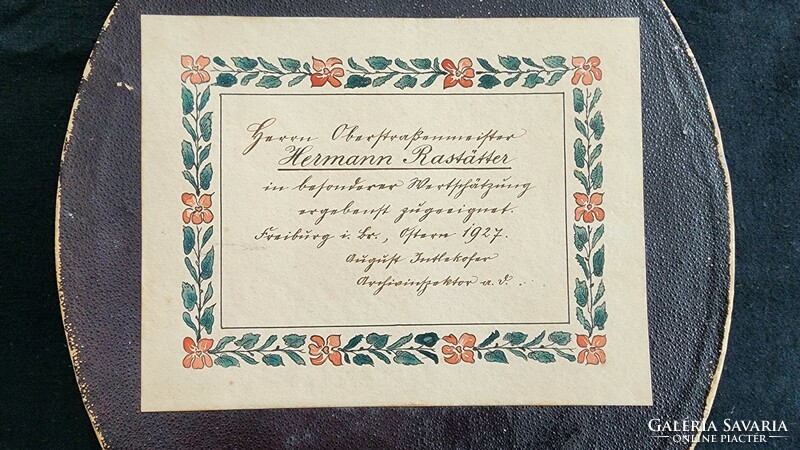 Herrn Oberstraßenmeister
Hermann Rastätter
in besonderer Wertschätzung
ergebenst zugeeignet.
Freiburg i. Br., Ostern 1927.
August Intlekofer
Archivinspektor a. D.
GALERIA SAVARIA
ONLINE PIACTÉR